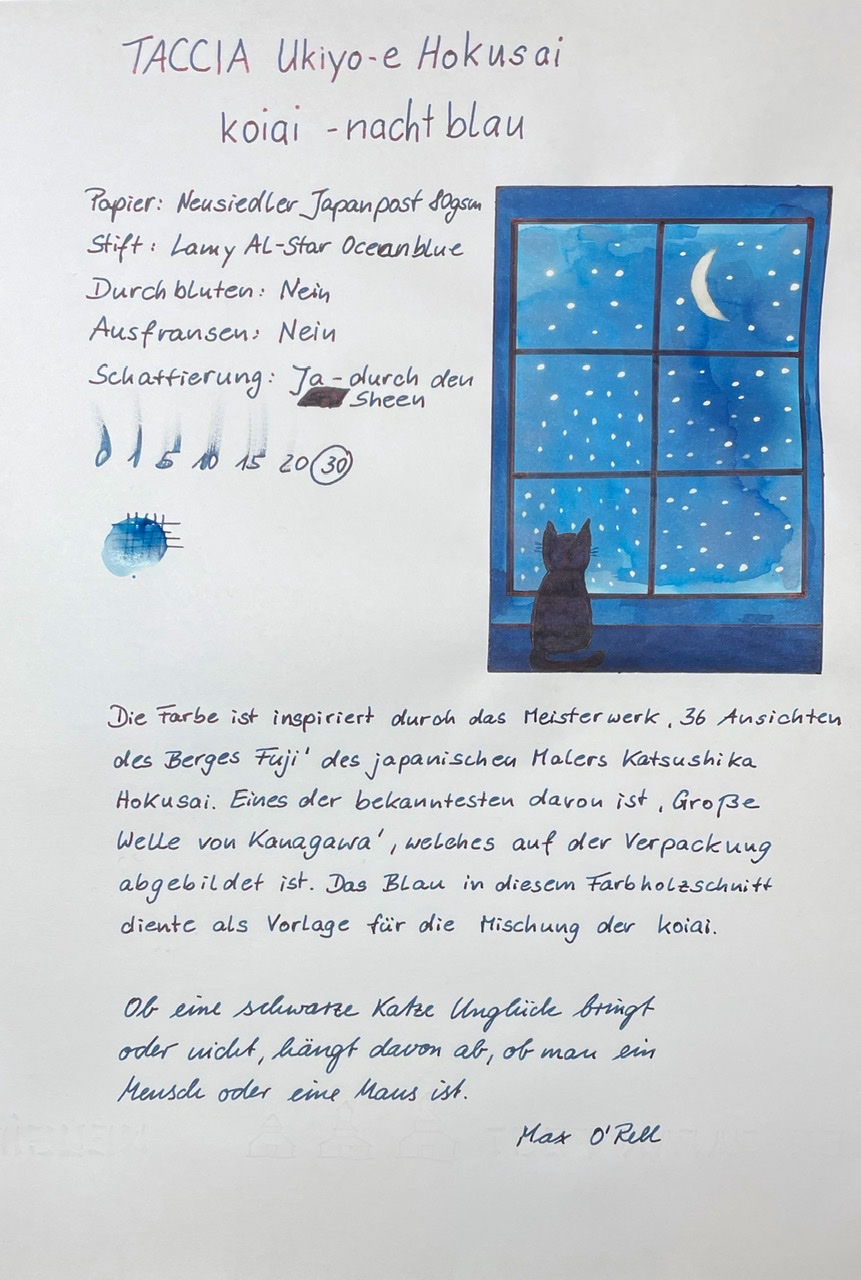 TACCIA Ukiyo-e Hokusai
koiai - nachtblau
Papier: Neusiedler Japanpost 80gsm
Stift: Lamy AL-Star Oceanblue
Durchbluten: Nein
Ausfransen: Nein
Schattierung: Ja - durch den
Sheen
0 1 5 10 15 20 30
Die Farbe ist inspiriert durch das Meisterwerk ‚36 Ansichten
des Berges Fuji' des japanischen Malers Katsushika
Hokusai. Eines der bekanntesten davon ist ‚Große
Welle von Kanagawa', welches auf der Verpackung
abgebildet ist. Das Blau in diesem Farbholzschnitt
diente als Vorlage für die Mischung der koiai.
Ob eine schwarze Katze Unglück bringt
oder nicht, hängt davon ab, ob man ein
Mensch oder eine Maus ist.
Max O'Rell